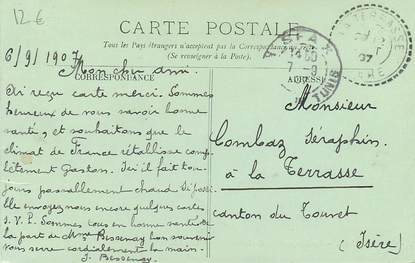 12 €
CARTE POSTALE
Tous les Pays étrangers n'acceptent pas la Correspondance au recto.
(Se renseigner à la Poste).
6/9/1907
CORRESPONDANCE
ADRESSE
Mon cher ami.
Ai reçu carte merci. Sommes
heureux de vous savoir bonne
santé, et souhaitons que le
climat de France rétablisse comp
lètement Gaston. Ici il fait tou-
jours passablement chaud. Si possi
ble envoyez nous encore quelques cartes
S.V.P. Sommes tous en bonne santé. De
la part de Mme Bessenay bon souvenir
vous serre cordialement la main.
J. Bessenay
Monsieur
Combaz Séraphin
à la Terrasse
canton du Touvet
(Isère)
SFAX
7-9
TUNIS
LA TERRASSE
07
ISÈRE